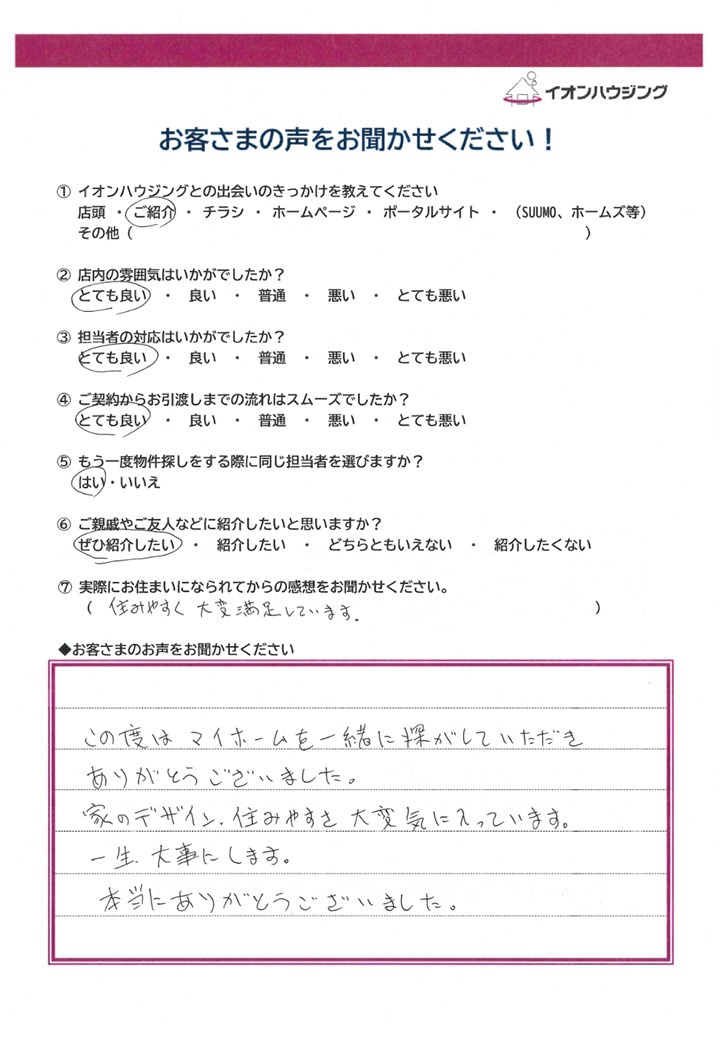 イオンハウジング
お客さまの声をお聞かせください！
① イオンハウジングとの出会いのきっかけを教えてください
店頭 ・ ご紹介 ・ チラシ ・ ホームページ ・ ポータルサイト ・ （SUUMO、ホームズ等）
その他（ ）
② 店内の雰囲気はいかがでしたか？
とても良い ・ 良い ・ 普通 ・ 悪い ・ とても悪い
③ 担当者の対応はいかがでしたか？
とても良い ・ 良い ・ 普通 ・ 悪い ・ とても悪い
④ ご契約からお引渡しまでの流れはスムーズでしたか？
とても良い ・ 良い ・ 普通 ・ 悪い ・ とても悪い
⑤ もう一度物件探しをする際に同じ担当者を選びますか？
はい・いいえ
⑥ ご親戚やご友人などに紹介したいと思いますか？
ぜひ紹介したい ・ 紹介したい ・ どちらともいえない ・ 紹介したくない
⑦ 実際にお住まいになられてからの感想をお聞かせください。
（ 住みやすく 大変満足しています。 ）
◆お客さまのお声をお聞かせください
この度は マイホームを一緒に探がしていただき
ありがとうございました。
家のデザイン、住みやすさ 大変気に入っています。
一生、大事にします。
本当にありがとうございました。